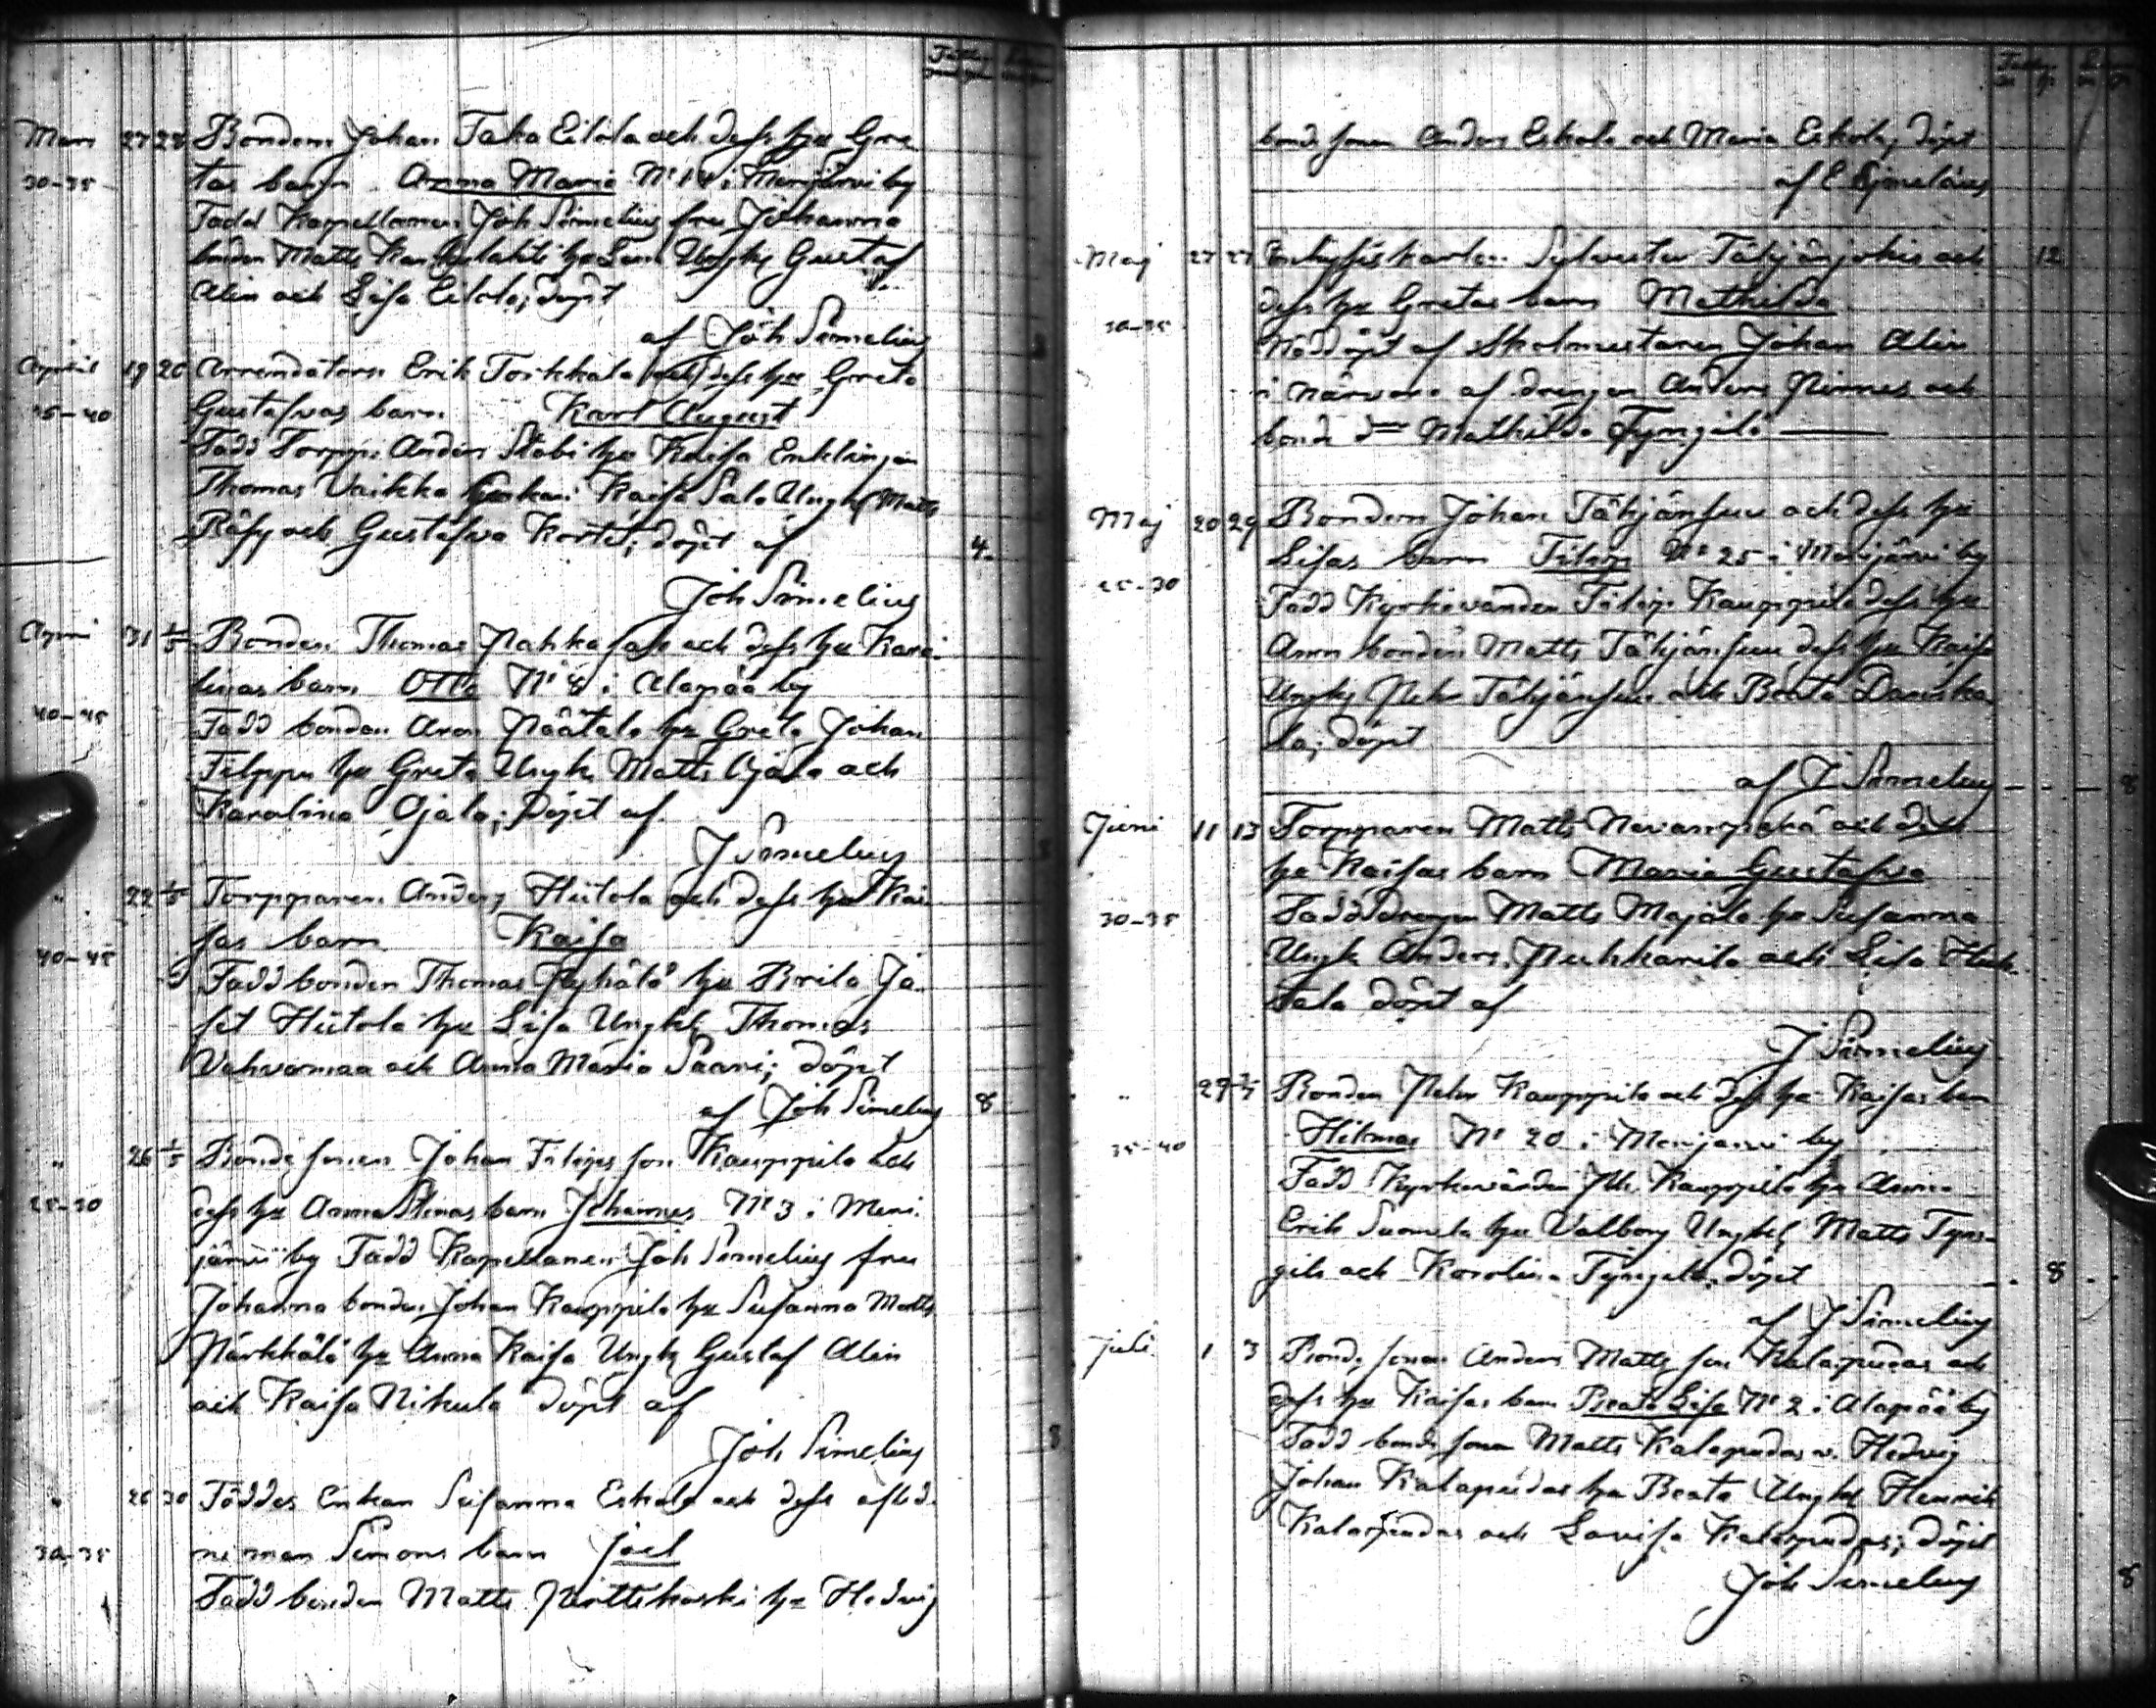 Mars 27 28 Bonden Johan Taka Eilola och dess hu Gre
30-35 tas barn Anna Maria N:o 14 i Merijärvi by
Fadd Kapellanen Joh Simelius fru Johanna
bonden Matts hu Lena Ungk Gustaf
Alin och Lisa Eilola; döpt
af Joh Simelius
April 19 20 Arrendatorn Erik Torkkola och dess hu Greta
35-40 Gustafvas barn Karl August
Fadd Torpp. Anders Stabi hu Kaisa Enklingen
Thomas Vaikko Kaisa Salo Ungk Matts
Räsy och Gustafva Korte; döpt af 4
Joh Simelius
April 31 1/5 Bonden Thomas Nahkasalo och dess hu Karo
linas barn Otto N:o 8 i Alapää by
40-45 Fadd bonden Aron Näätälä hu Greta Johan
Filppu hu Greta Ungk Matts Ojala och
Karolina Ojala; döpt af
J Simelius
" 22 1/5 Torpparen Anders Hiitola och dess hu Kai
sas barn Kaisa
40-45 Fadd bonden Thomas Pyhälä hu Brita Ja
fet Hiitola hu Lisa Ungk Thomas
Vahvamaa och Anna Maria Saari; döpt
af Joh Simelius 8
" 26 1/5 Bonde sonen Johan Filips son Kauppila och
25-30 dess hu Anna Stinas barn Johannes N:o 3 i Meri
järvi by Fadd Kapellanen Joh Simelius fru
Johanna bonden Johan Kauppila hu Susanna Matts
Närkkälä hu Anna Kaisa Ungk Gustaf Alin
och Kaisa Nikula döpt af
Joh Simelius 8
" 26 30 Föddes Enkan Susanna Eskola och dess aflid
30-35 ne man Simons barn Joel
Fadd bonden Matts Pirttikoski hu Hedvig
bonde sonen Anders Eskola och Maria Eskola; döpt
af E Simelius
Maj 27 27 Sylvester Tähjänjokis och 12
dess hu Gretas barn Mathilda
30-35 Nöddöpt af Skolmestaren Johan Alin
i närvaro af drengen Anders Pirnes och
bonde d:r Mathilda Tyngilä
Maj 20 29 Bonden Johan Tähjänsuu och dess hu
Lisas barn Filip N:o 25 i Merijärvi by
25-30 Fadd Kyrkovärden Filip Kauppila dess hu
Anna bonden Matts Tähjänsuu dess hu Kaisa
Ungk Petter Tähjänsuu och Beata Damska
la; döpt
af J Simelius 8
Juni 11 13 Torpparen Matts Nevanperä och dess
hu Kaisas barn Maria Gustafva
30-35 Fadd drengen Matts Majala hu Susanna
Ungk Anders Puhkarila och Lisa Huh
tala döpt af
J Simelius
" 29 2/7 Bonden Petter Kauppila och dess hu Kaisas barn
35-40 Hilma N:o 20 i Merijärvi by
Fadd Kyrkovärden Fili. Kauppila hu Anna
Erik Suomela hu Valborg Ungk Matts Tyn-
gilä och Karolina Tyngilä; döpt 8
af J Simelius
Juli 1 3 Bonde sonen Anders Matts son Kalapudas och
dess hu Kaisas barn Beata Lisa N:o 2 i Alapää by
Fadd bonde sonen Matts Kalapudas o. Hedvig
Johan Kalapudas hu Beata Ungk Henrik
Kalapudas och Lovisa Kalapudas; döpt
Joh Simelius 8